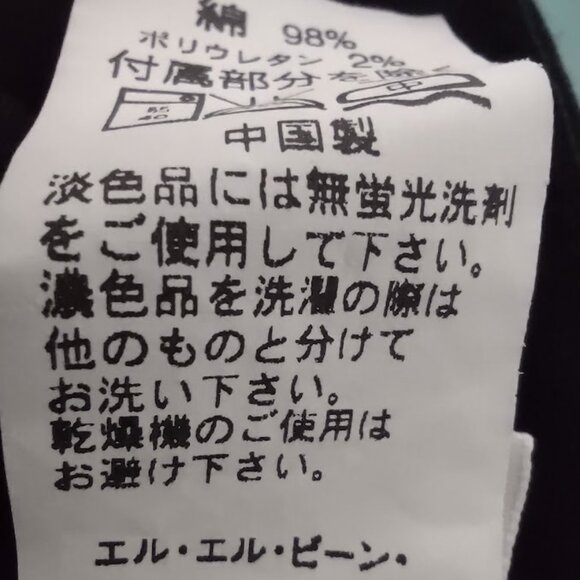 綿 98%
ポリウレタン 2%
付属部分を除く
40
中
中国製
淡色品には無蛍光洗剤
をご使用して下さい。
濃色品を洗濯の際は
他のものと分けて
お洗い下さい。
乾燥機のご使用は
お避け下さい。
エル・エル・ビーン.